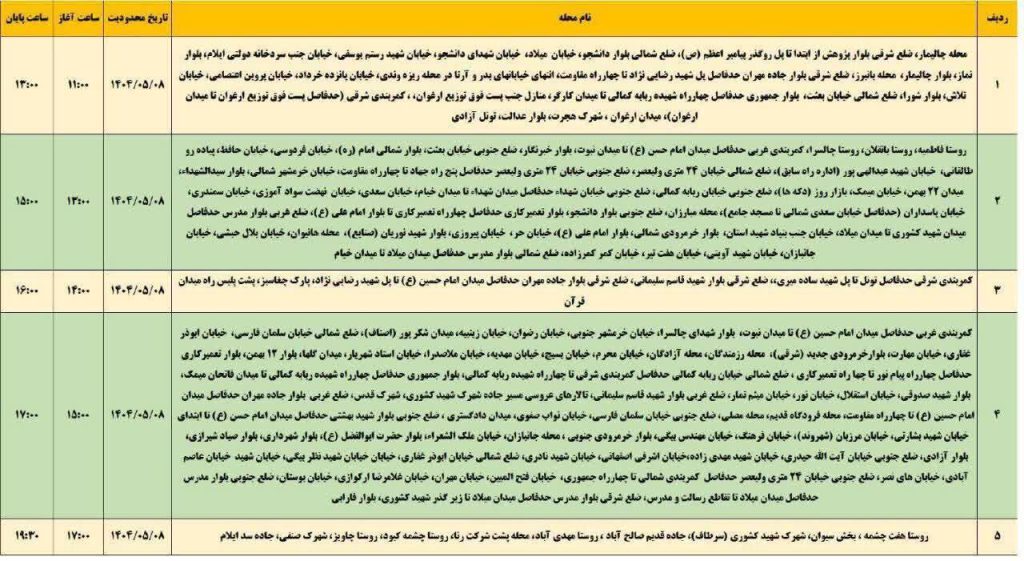 ردیف نام محله تاریخ محدودیت ساعت آغاز ساعت پایان
محله چالیمار، ضلع شرقی بلوار پژوهش از ابتدا تا پل روگذر پیامبر اعظم (ص)، ضلع شمالی بلوار دانشجو، خیابان میلاد، خیابان شهدای دانشجو، خیابان شهید رستم یوسفی، خیابان جنب سردخانه دولتی ایلام، بلوار
نماز، بلوار چالیمار، محله بانبرز، ضلع شرقی بلوار جاده مهران حدفاصل پل شهید رضایی نژاد تا چهارراه مقاومت، انتهای خیابانهای پدر و آرتا در محله ریزه وندی، خیابان پانزده خرداد، خیابان پروین اعتصامی، خیابان
۱ تلاش، بلوار شورا، ضلع شمالی خیابان بعثت، بلوار جمهوری حدفاصل چهارراه شهیده ریابه کمالی تا میدان کارگر، منازل جنب پست فوق توزیع ارغوان، ، کمربندی شرقی (حدفاصل پست فوق توزیع ارغوان تا میدان ۱۴۰۴/۰۵/۰۸ ۱۱:۰۰ ۱۳:۰۰
ارغوان)، میدان ارغوان ، شهرک هجرت، بلوار عدالت، تونل آزادی
روستا فاطمیه، روستا بانقلان، روستا چالسرا، کمربندی غربی حدفاصل میدان امام حسن (ع) تا میدان نبوت، بلوار خبرنگار، ضلع جنوبی خیابان بعثت، بلوار شمالی امام (ره)، خیابان فردوسی، خیابان حافظ، پیاده رو
طالقانی، خیابان شهید عبدالهی پور (اداره راه سابق)، ضلع شمالی خیابان ۲۴ متری ولیعصر، ضلع جنوبی خیابان ۲۴ متری ولیعصر حدفاصل پنج راه جهاد تا چهارراه مقاومت، خیابان خرمشهر شمالی، بلوار سیدالشهداء،
میدان ۲۲ بهمن، خیابان میمک، بازار روز (دکه ها)، ضلع جنوبی خیابان ریابه کمالی، ضلع جنوبی خیابان شهداء حدفاصل میدان شهداء تا میدان خیام، خیابان سعدی، خیابان نهضت سواد آموزی، خیابان سمندری،
۲ خیابان پاسداران (حدفاصل خیابان سعدی شمالی تا مسجد جامع)، محله مبارزان، ضلع جنوبی بلوار دانشجو، بلوار تعمیرکاری حدفاصل چهارراه تعمیرکاری تا بلوار امام علی (ع)، ضلع غربی بلوار مدرس حدفاصل ۱۴۰۴/۰۵/۰۸ ۱۳:۰۰ ۱۵:۰۰
میدان شهید کشوری تا میدان میلاد، خیابان جنب بنیاد شهید استان، بلوار خرمرودی شمالی، بلوار امام علی (ع)، خیابان حر، خیابان پیروزی، بلوار شهید نوریان (صنایع)، محله هانیوان، خیابان بلال حبشی، خیابان
جانبازان، خیابان شهید آوینی، خیابان هفت تیر، خیابان کمر کمرزاده، ضلع شمالی بلوار مدرس حدفاصل میدان میلاد تا میدان خیام
۳ کمربندی شرقی حدفاصل تونل تا پل شهید ساده میری،، ضلع شرقی بلوار شهید قاسم سلیمانی، ضلع شرقی بلوار جاده مهران حدفاصل میدان امام حسین (ع) تا پل شهید رضایی نژاد، پارک چغاسبز، پشت پلیس راه میدان ۱۴۰۴/۰۵/۰۸ ۱۴:۰۰ ۱۶:۰۰
قرآن
کمربندی غربی حدفاصل میدان امام حسین (ع) تا میدان نبوت، بلوار شهدای چالسرا، خیابان خرمشهر جنوبی، خیابان رضوان، خیابان زینبیه، میدان شکر پور (اصناف)، ضلع شمالی خیابان سلمان فارسی، خیابان ابوذر
غفاری، خیابان مهارت، بلوارخرمرودی جدید (شرقی)، محله رزمندگان، محله آزادگان، خیابان محرم، خیابان بسیج، خیابان مهدیه، خیابان ملاصدرا، خیابان استاد شهریار، میدان گلها، بلوار ۱۲ بهمن، بلوار تعمیرکاری
حدفاصل چهارراه پیام نور تا چها راه تعمیرکاری ، ضلع شمالی خیابان ریابه کمالی حدفاصل کمربندی شرقی تا چهارراه شهیده ریابه کمالی، بلوار جمهوری حدفاصل چهارراه شهیده ریابه کمالی تا میدان فاتحان میمک،
بلوار شهید صدوقی، خیابان استقلال، خیابان نور، خیابان میثم تمار، ضلع غربی بلوار شهید قاسم سلیمانی، تالارهای عروسی مسیر جاده شهرک شهید کشوری، شهرک قدس، ضلع غربی بلوار جاده مهران حدفاصل میدان
۴ امام حسین (ع) تا چهارراه مقاومت، محله فرودگاه قدیم، محله مصلی، ضلع جنوبی خیابان سلمان فارسی، خیابان نواب صفوی، میدان دادگستری ، ضلع جنوبی بلوار شهید بهشتی حدفاصل میدان امام حسن (ع) تا ابتدای ۱۴۰۴/۰۵/۰۸ ۱۵:۰۰ ۱۷:۰۰
خیابان شهید بشارتی، خیابان مرزبان (شهروند)، خیابان فرهنگ، خیابان مهندس بیگی، بلوار خرمرودی جنوبی ، محله جانبازان، خیابان ملک الشعراء، بلوار حضرت ابوالفضل (ع)، بلوار شهرداری، بلوار صیاد شیرازی،
بلوار آزادی، ضلع جنوبی خیابان آیت الله حیدری، خیابان شهید مهدی زاده،خیابان اشرفی اصفهانی، خیابان شهید نادری، ضلع شمالی خیابان ابوذر غفاری، خیابان خیابان شهید نظر بیگی، خیابان شهید خیابان عاصم
آبادی، خیابان های نصر، ضلع جنوبی خیابان ۲۴ متری ولیعصر حدفاصل کمربندی شمالی تا چهارراه جمهوری، خیابان فتح المبین، خیابان مهران، خیابان غلامرضا ارکوازی، خیابان بوستان، ضلع جنوبی بلوار مدرس
حدفاصل میدان میلاد تا تقاطع رسالت و مدرس، ضلع شرقی بلوار مدرس حدفاصل میدان میلاد تا زیر گذر شهید کشوری، بلوار فارابی
۵ روستا هفت چشمه ، بخش سیوان، شهرک شهید کشوری (سرطاف)، جاده قدیم صالح آباد ، روستا مهدی آباد، محله پشت شرکت رنا، روستا چشمه کبود، روستا چاویز، شهرک صنفی، جاده سد ایلام ۱۴۰۴/۰۵/۰۸ ۱۷:۰۰ ۱۹:۳۰